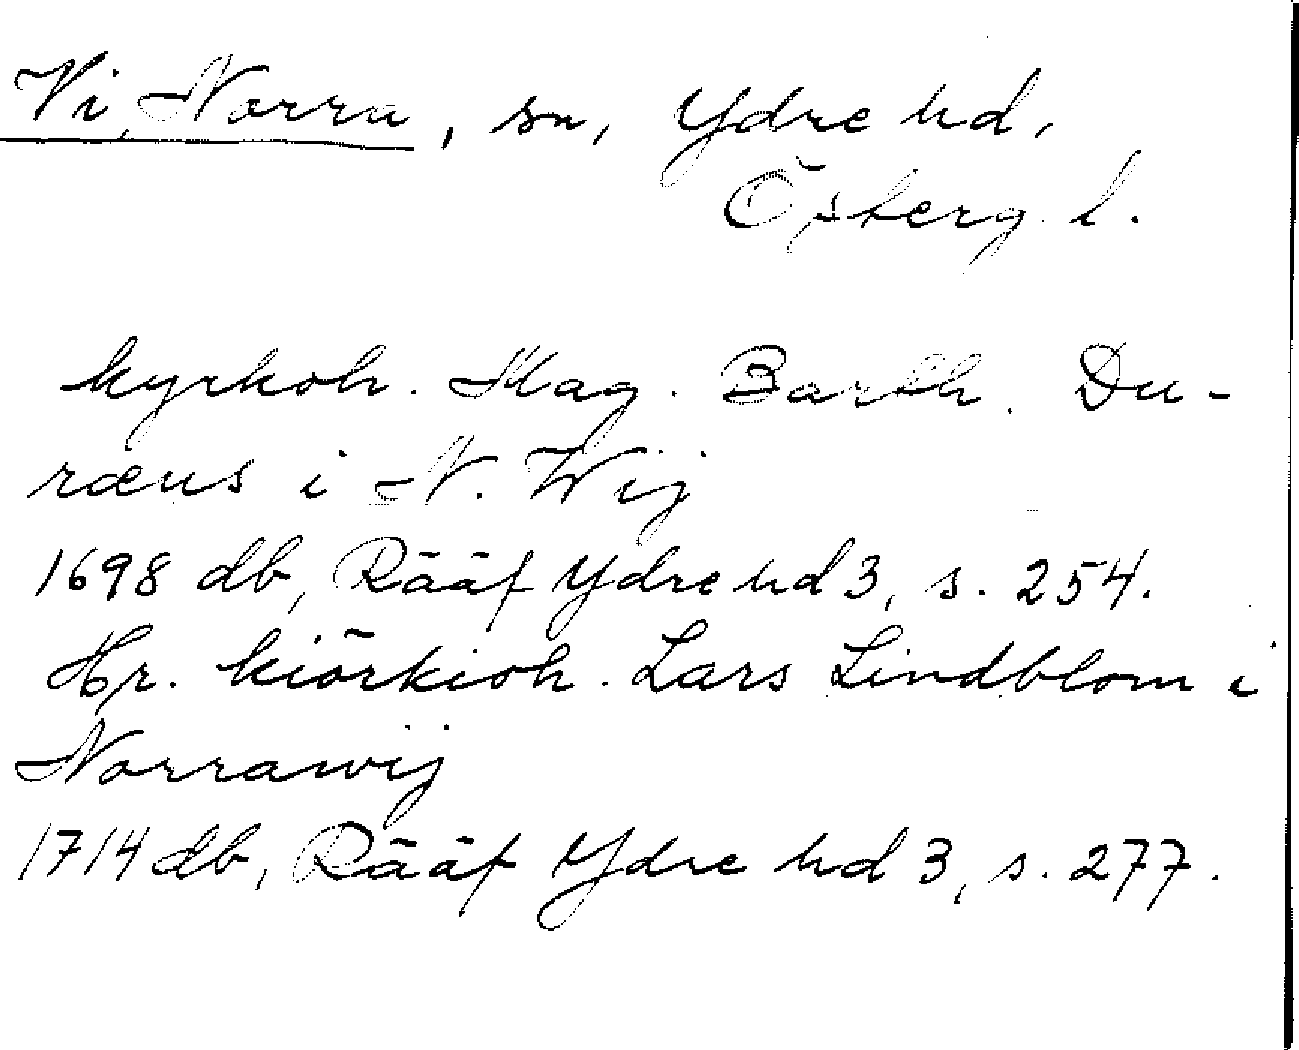 Vi, Norra, sn, Ydre hd,
Österg. l.
kyrkoh. Mag. Barth. Du-
ræus i N. Wij
1698 db, Rääf Ydre hd 3, s. 254.
Hr. kiörkioh. Lars Lindblom i
Norrawij
1714 db, Rääf Ydre hd 3, s. 277.